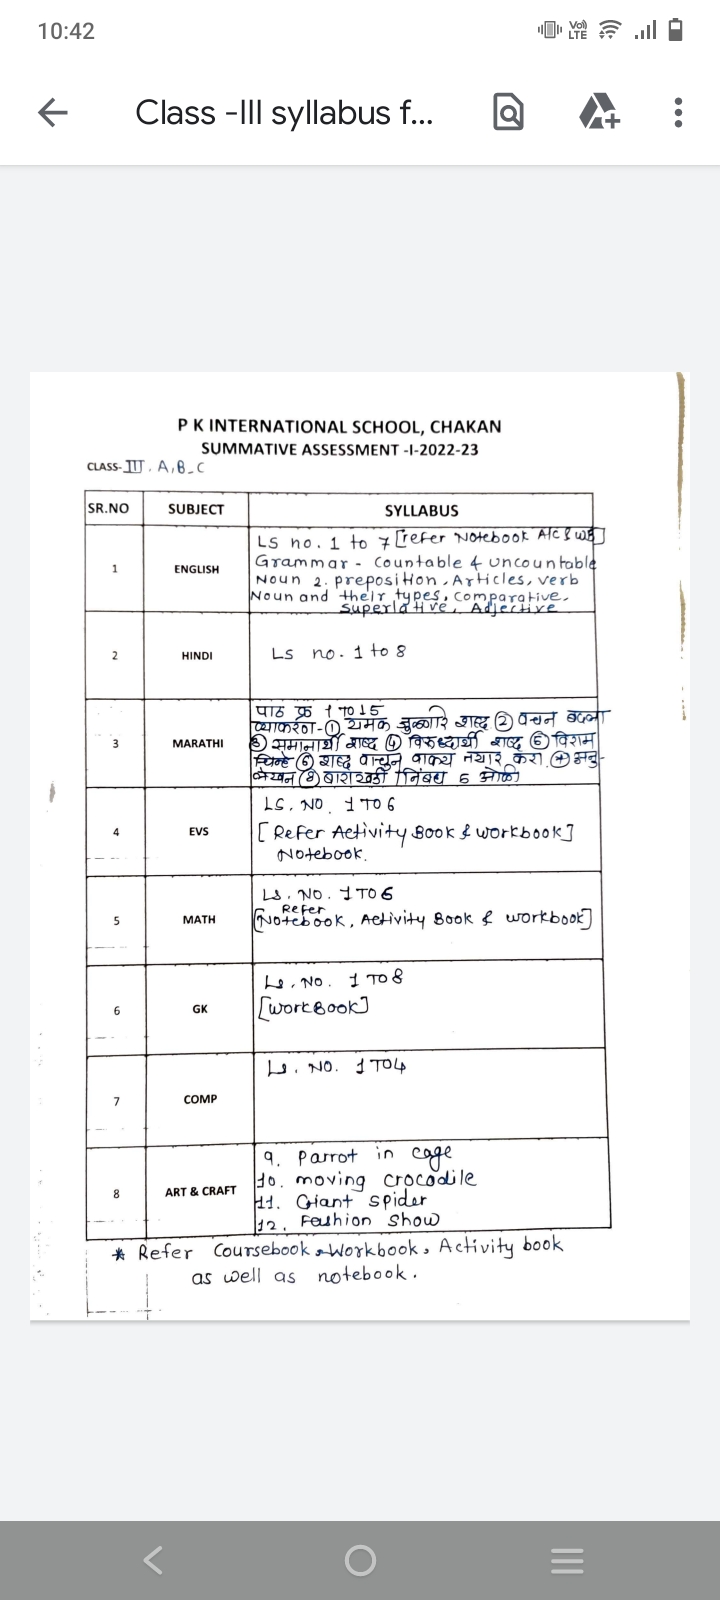 10:42
Vo) LTE
Class -III syllabus f...
P K INTERNATIONAL SCHOOL, CHAKAN
SUMMATIVE ASSESSMENT -I-2022-23
CLASS- III . A, B, C
SR.NO SUBJECT SYLLABUS
1 ENGLISH
LS no. 1 to 7 [refer Notebook A/C & WB]
Grammar - Countable & uncountable
Noun 2. preposition, Articles, verb
Noun and their types, Comparative,
superlative, Adjective
2 HINDI Ls no. 1 to 8
3 MARATHI
पाठ क्र 1 TO 15
व्याकरण - ① यमक जुळणारे शब्द ② वचन बदला
③ समानार्थी शब्द ④ विरुध्दार्थी शब्द ⑤ विराम
चिन्हे ⑥ शब्द वाचुन वाक्य तयार करा ⑦ अनु-
लेखन ⑧ बाराखडी निबंध 5 ओळी
4 EVS
LS. NO. 1 TO 6
[Refer Activity Book & workbook]
Notebook.
5 MATH
Ls. NO. 1 TO 6
Refer
[Notebook, Activity Book & workbook]
6 GK
Ls. NO. 1 TO 8
[WorkBook]
7 COMP Ls. NO. 1 TO 4
8 ART & CRAFT
9. Parrot in cage
10. moving crocodile
11. Giant spider
12. Fashion Show
* Refer Coursebook, Workbook, Activity book
as well as notebook.